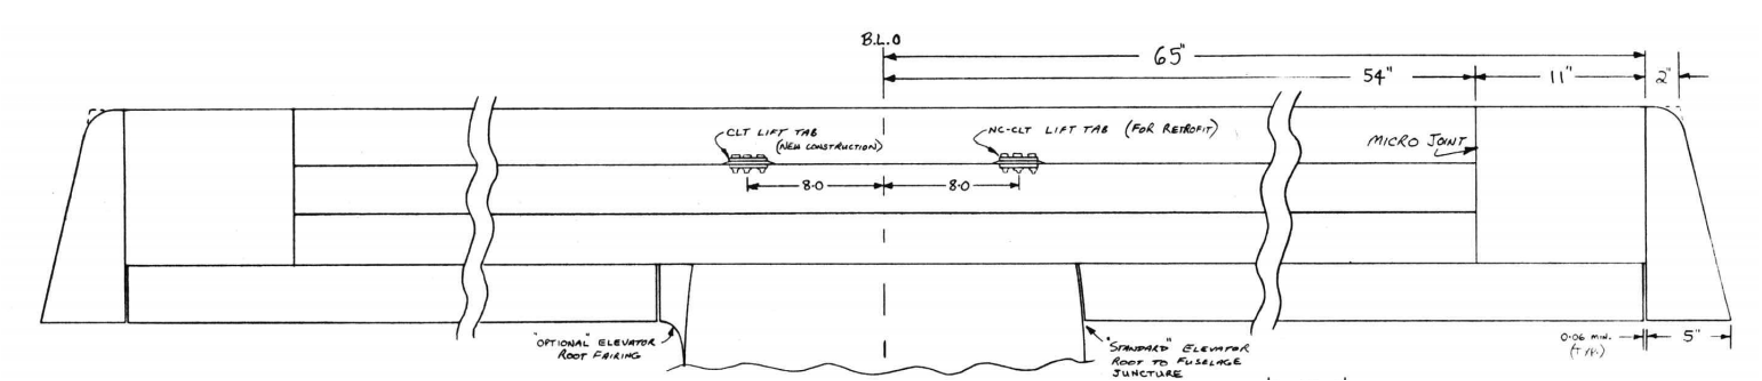 B.L.O
65"
54"
11"
2"
CLT LIFT TAB
(NEW CONSTRUCTION)
NC-CLT LIFT TAB (FOR RETROFIT)
MICRO JOINT
8.0
8.0
"OPTIONAL" ELEVATOR
ROOT FAIRING
"STANDARD" ELEVATOR
ROOT TO FUSELAGE
JUNCTURE
0.06 MIN.
(TYP.)
5"